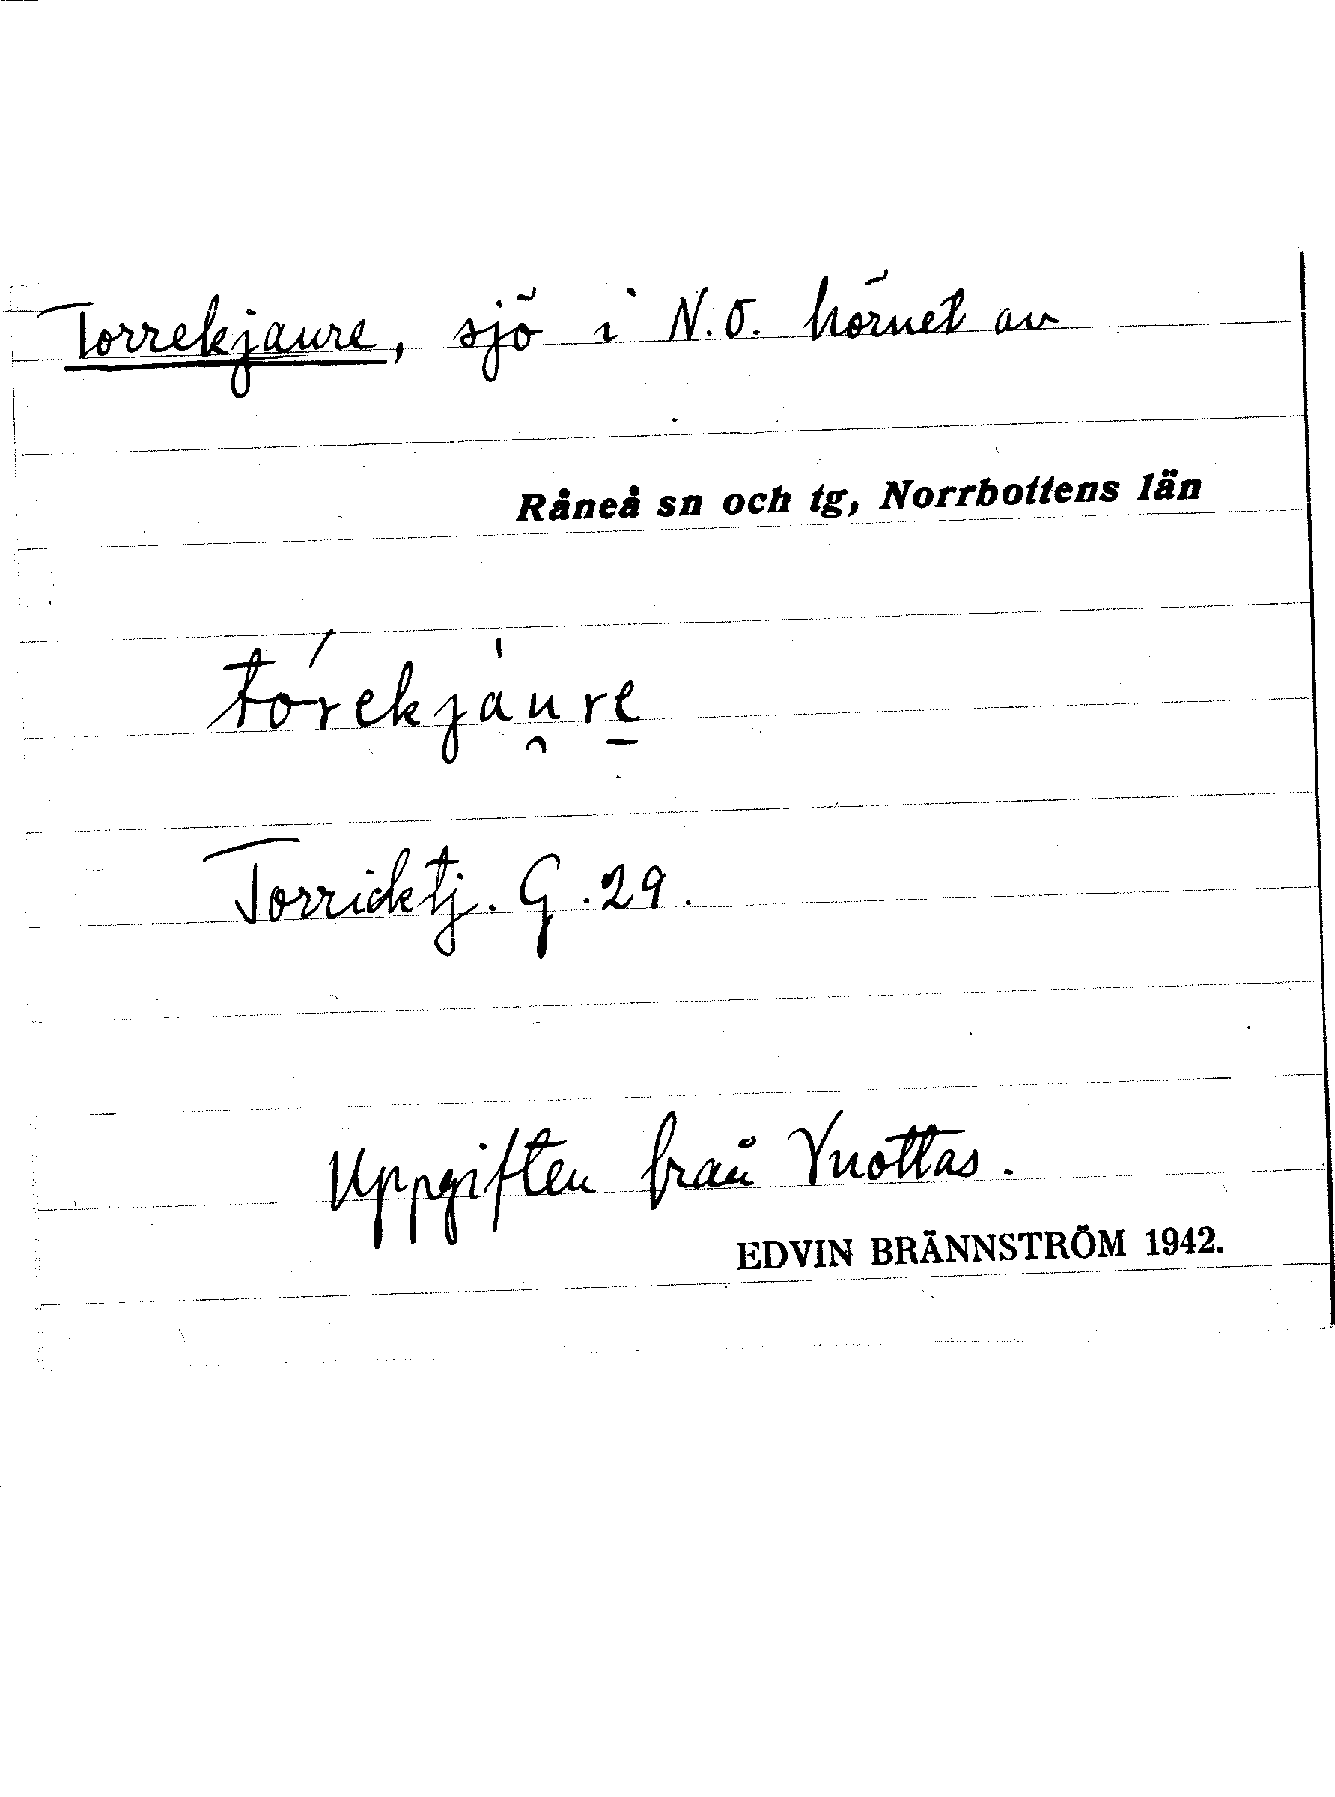 Torrekjaure, sjö i N.O. hörnet av
Råneå sn och tg, Norrbottens län
tórekjàu̯re̱
Torricktj. G. 29.
Uppgiften från Vuottas.
EDVIN BRÄNNSTRÖM 1942.